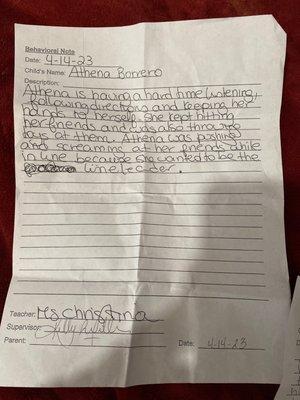 Behavioral Note
Date: 4-14-23
Child's Name: Athena Borrero
Description:
Athena is having a hard time listening,
following directions and keeping her
hands to herself. She kept hitting
her friends and was also throwing
toys at them. Athena was pushing
and screaming at her friends while
in line because she wanted to be the
line leader.
Teacher: Ms Christina
Supervisor:
Parent: Date: 4-14-23